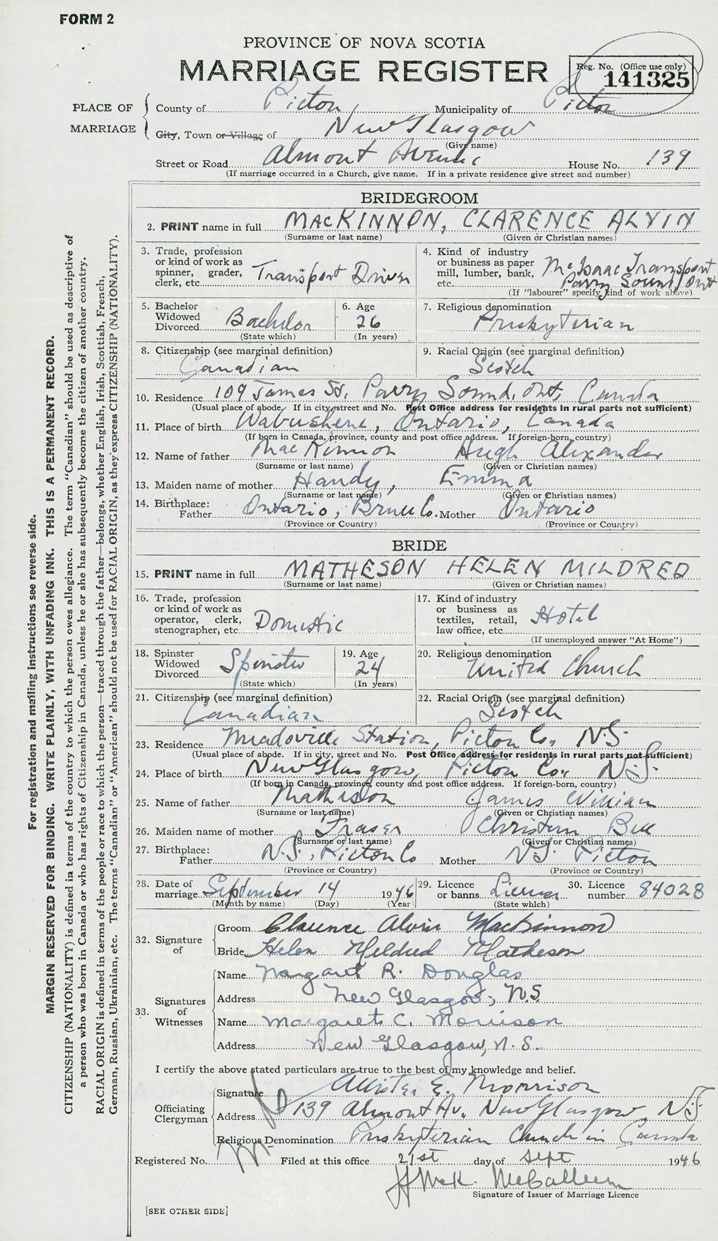 FORM 2
PROVINCE OF NOVA SCOTIA
MARRIAGE REGISTER
Reg. No. (Office use only)
141325
PLACE OF MARRIAGE
County of Pictou Municipality of Pictou
City, Town or Village of New Glasgow
(Give name)
Street or Road Almont Avenue House No. 139
(If marriage occurred in a Church, give name. If in a private residence give street and number)
BRIDEGROOM
2. PRINT name in full MACKINNON, CLARENCE ALVIN
(Surname or last name) (Given or Christian names)
3. Trade, profession or kind of work as spinner, grader, clerk, etc. Transport Driver
4. Kind of industry or business as paper mill, lumber, bank, etc. McIsaac Transport Parry Sound, Ont
(If "labourer" specify kind of work above)
5. Bachelor Widowed Divorced Bachelor
(State which)
6. Age 26
(In years)
7. Religious denomination Presbyterian
8. Citizenship (see marginal definition) Canadian
9. Racial Origin (see marginal definition) Scotch
10. Residence 109 James St. Parry Sound, Ont, Canada
(Usual place of abode. If in city street and No. Post Office address for residents in rural parts not sufficient)
11. Place of birth Wabushene, Ontario, Canada
(If born in Canada, province, county and post office address. If foreign-born, country)
12. Name of father MacKinnon Hugh Alexander
(Surname or last name) (Given or Christian names)
13. Maiden name of mother Handy, Emma
(Surname or last name) (Given or Christian names)
14. Birthplace: Father Ontario, Bruce Co. Mother Ontario
(Province or Country) (Province or Country)
BRIDE
15. PRINT name in full MATHESON HELEN MILDRED
(Surname or last name) (Given or Christian names)
16. Trade, profession or kind of work as operator, clerk, stenographer, etc Domestic
17. Kind of industry or business as textiles, retail, law office, etc. Hotel
(If unemployed answer "At Home")
18. Spinster Widowed Divorced Spinster
(State which)
19. Age 24
(In years)
20. Religious denomination United Church
21. Citizenship (see marginal definition) Canadian
22. Racial Origin (see marginal definition) Scotch
23. Residence Meadoville Station, Pictou Co. N.S.
(Usual place of abode. If in city, street and No. Post Office address for residents in rural parts not sufficient)
24. Place of birth New Glasgow, Pictou Co., N.S.
(If born in Canada, province, county and post office address. If foreign-born, country)
25. Name of father Matheson James William
(Surname or last name) (Given or Christian names)
26. Maiden name of mother Fraser Christen Bell
(Surname or last name) (Given or Christian names)
27. Birthplace: Father N.S., Pictou Co Mother N.S. Pictou
(Province or Country) (Province or Country)
28. Date of marriage September 14 1946
(Month by name) (Day) (Year)
29. Licence or banns License
(State which)
30. Licence number 84028
32. Signature of
Groom Clarence Alvin MacKinnon
Bride Helen Mildred Matheson
33. Signatures of Witnesses
Name Margaret R. Douglas
Address New Glasgow, N.S.
Name Margaret C. Morrison
Address New Glasgow, N.S.
I certify the above stated particulars are true to the best of my knowledge and belief.
Officiating Clergyman
Signature Allister E. Morrison
Address 139 Almont Av. New Glasgow, N.S.
Religious Denomination Presbyterian Church in Canada
Registered No. Filed at this office 21st day of Sept 1946
Signature of Issuer of Marriage Licence
[SEE OTHER SIDE]
For registration and mailing instructions see reverse side.
MARGIN RESERVED FOR BINDING. WRITE PLAINLY, WITH UNFADING INK. THIS IS A PERMANENT RECORD.
CITIZENSHIP (NATIONALITY) is defined in terms of the country to which the person owes allegiance. The term "Canadian" should be used as descriptive of
a person who was born in Canada or who has rights of Citizenship in Canada, unless he or she has subsequently become the citizen of another country.
RACIAL ORIGIN is defined in terms of the people or race to which the person—traced through the father—belongs, whether English, Irish, Scottish, French,
German, Russian, Ukrainian, etc. The terms "Canadian" or "American" should not be used for RACIAL ORIGIN, as they express CITIZENSHIP (NATIONALITY).